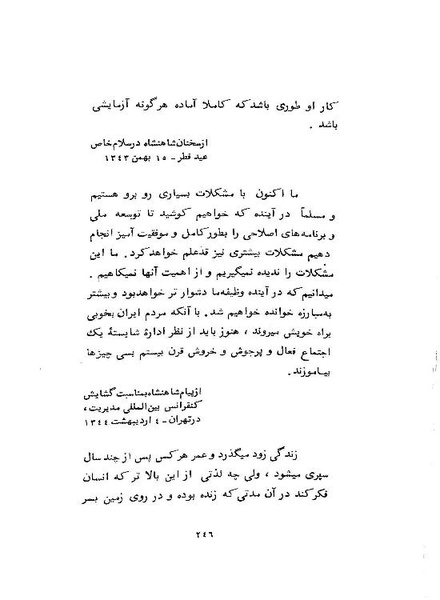 کار او طوری باشد که کاملا آماده هرگونه آزمایشی
باشد .
از سخنان شاهنشاه در سلام خاص
عید فطر - ۱۵ بهمن ۱۳۴۳
ما اکنون با مشکلات بسیاری رو برو هستیم
و مسلماً در آینده که خواهیم کوشید تا توسعه ملی
و برنامه‌های اصلاحی را بطور کامل و موفقیت آمیز انجام
دهیم مشکلات بیشتری نیز قدعلم خواهد کرد . ما این
مشکلات را ندیده نمیگیریم و از اهمیت آنها نمیکاهیم .
میدانیم که در آینده وظیفه ما دشوار تر خواهد بود و بیشتر
به مبارزه خوانده خواهیم شد . با آنکه مردم ایران بخوبی
براه خویش میروند ، هنوز باید از نظر ادارهٔ شایستهٔ یک
اجتماع فعال و پرجوش و خروش قرن بیستم بسی چیزها
بیاموزند.
از پیام شاهنشاه بمناسبت گشایش
کنفرانس بین‌المللی مدیریت ،
در تهران - ٤ اردیبهشت ۱۳٤٤
زندگی زود میگذرد و عمر هرکس پس از چند سال
سپری میشود ، ولی چه لذتی از این بالا تر که انسان
فکر کند در آن مدتی که زنده بوده و در روی زمین بسر
٢٤٦